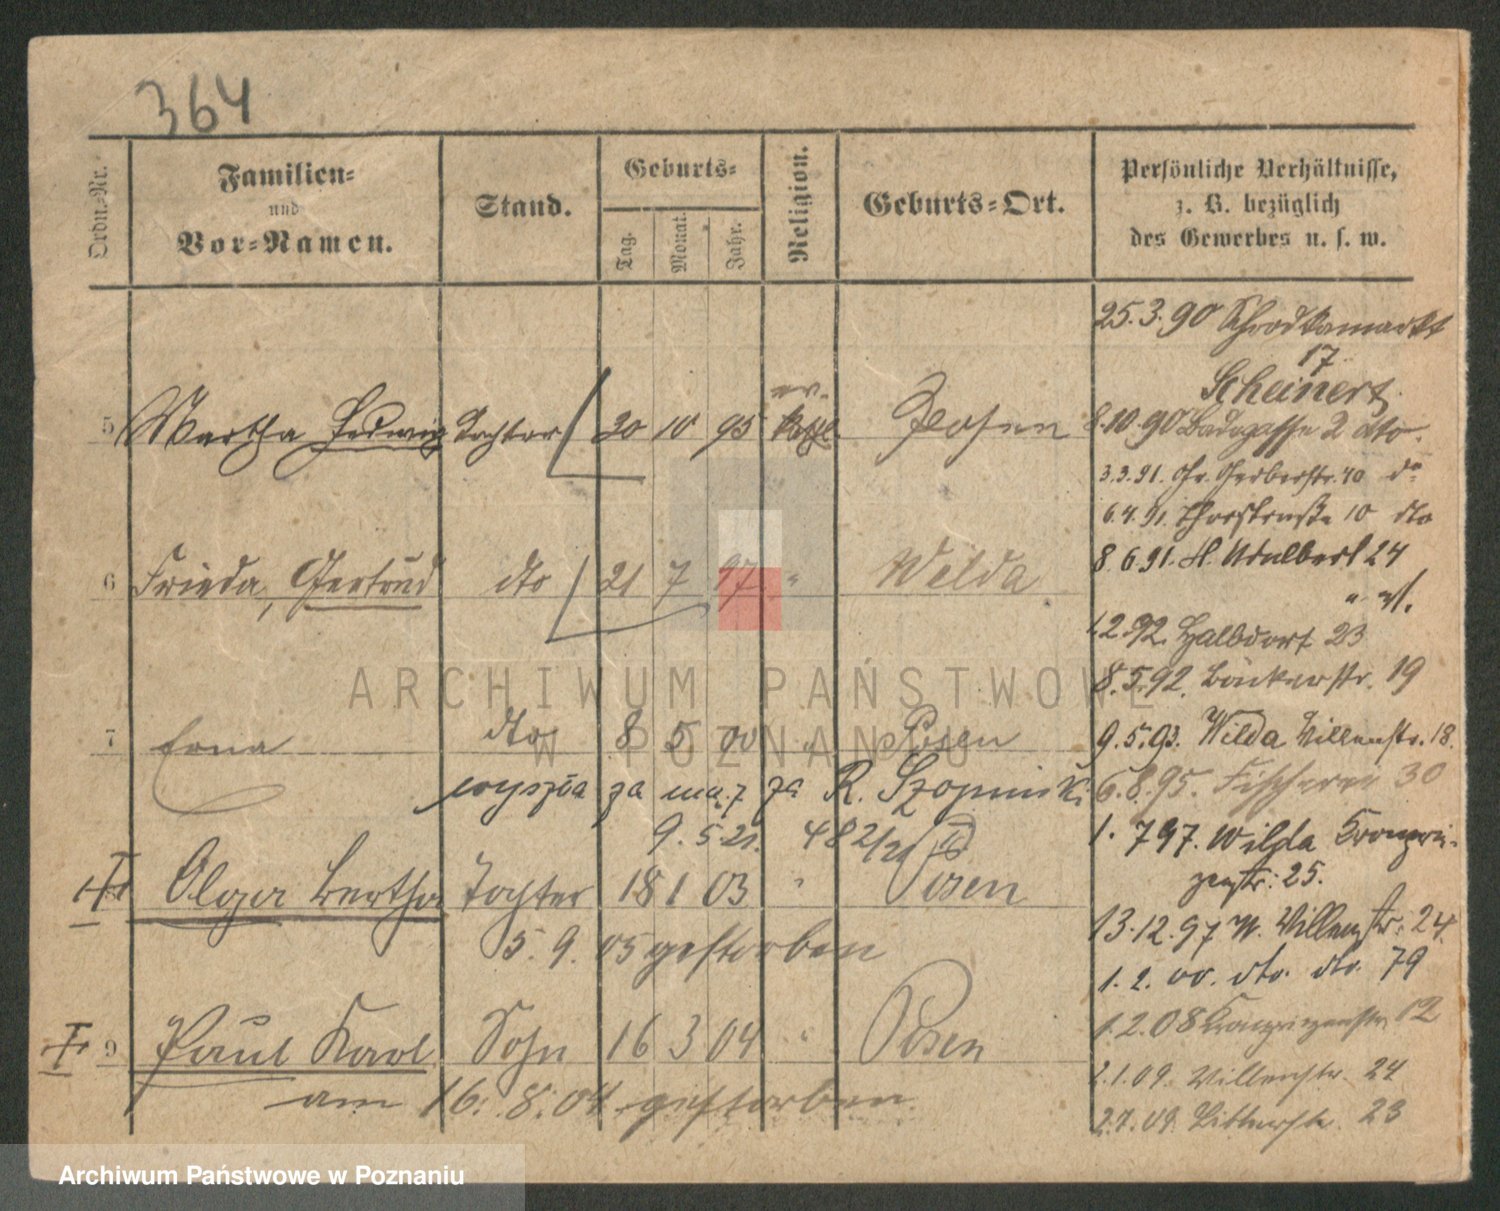 364
Ordn.-Nr.
Familien-
und
Vor-Namen.
Stand.
Geburts-
Tag.
Monat.
Jahr.
Religion.
Geburts-Ort.
Persönliche Verhältnisse,
z. B. bezüglich
des Gewerbes u. s. w.
5 Martha Hedwig Tochter 20 10 95 ev. kath. Posen
6 Frieda, Gertrud dto 21 7 97 " Wilda
7 Erna dto 8 5 00 " Posen
wyszła za mąż za R. Szopiński
9. 5. 21. 482/21
Olga Bertha Tochter 18 1 03 " Posen
5. 9. 05 gestorben
9 Paul Karl Sohn 16 3 04 " Posen
am 16. 8. 04 gestorben
25. 3. 90 Schrodkamarkt
17
Scheinert
8. 10. 90 Badegasse 2 dto.
3. 3. 91. Gr. Gerberstr. 40 do
6. 4. 91. Thorstraße 10 dto
8. 6. 91. St. Adalbert 24
1. 2. 92. Halbdorf 23
8. 5. 92. Bäckerstr. 19
9. 5. 93. Wilda Villenstr. 18.
6. 8. 95. Fischerei 30
1. 7 97. Wilda Kronprin-
zenstr: 25.
13. 12. 97 W. Villenstr. 24.
1. 2. 00. dto. dto. 79
1. 2. 08 Kronprinzenstr. 12
2. 1. 09. Villenstr. 24
2. 7. 09. Bitterstr. 23
ARCHIWUM PAŃSTWOWE
W POZNANIU
Archiwum Państwowe w Poznaniu